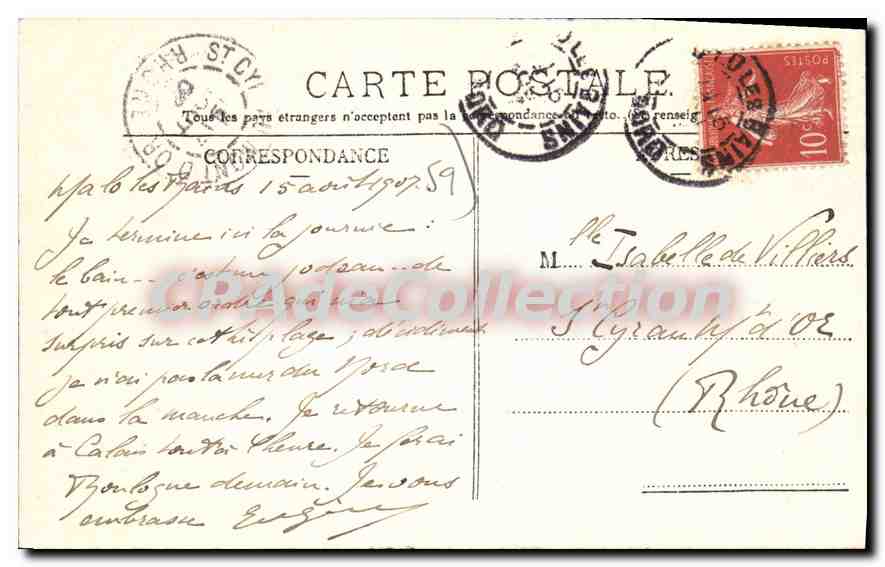 CARTE POSTALE
Tous les pays étrangers n'acceptent pas la correspondance au recto. (Se renseig
CORRESPONDANCE
RES
POSTES
10c
ST CYR AU MONT D'OR
RHONE
LES BAINS
NORD
Malo les Bains 15 août 1907. 59
Je termine ici la journée :
le bain .. c'est un
tout premier ordre qui m'a
surpris sur cette plage ; décidément
je n'ai pas la mer du Nord
dans la manche. Je retourne
à Calais tout à l'heure. Je ferai
Boulogne demain. Je vous
embrasse Eugène
Mlle Isabelle de Villiers
St Cyr au Mt d'Or
(Rhône)
CPAdeCollection